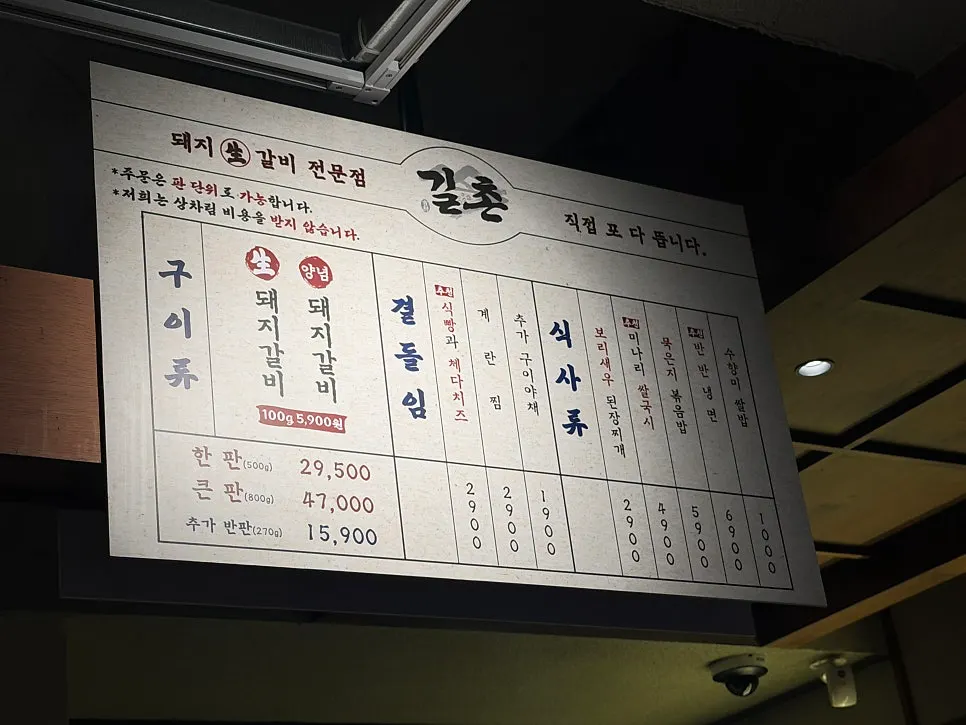 돼지 生 갈비 전문점
길촌
직접 포 다 뜹니다.
*주문은 판 단위로 가능합니다.
*저희는 상차림 비용을 받지 않습니다.
구이류
生 돼지갈비
양념 돼지갈비
100g 5,900원
한 판(500g) 29,500
큰 판(800g) 47,000
추가 반판(270g) 15,900
곁들임
수제 식빵과 체다치즈 2900
계란찜 2900
추가 구이야채 1900
식사류
보리새우 된장찌개 2900
미나리 쌀국시 4900
묵은지 볶음밥 5900
반반냉면 6900
수향미 쌀밥 1000